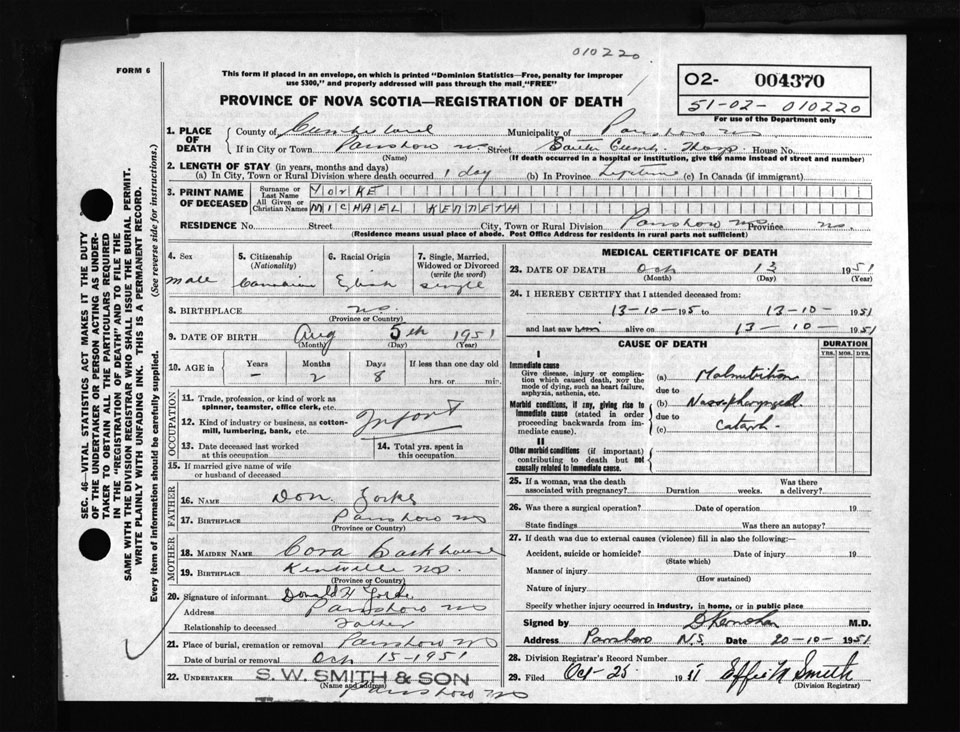 010220
FORM 6
This form if placed in an envelope, on which is printed "Dominion Statistics—Free, penalty for improper
use $300," and properly addressed will pass through the mail "FREE"
PROVINCE OF NOVA SCOTIA—REGISTRATION OF DEATH
02- 004370
51-02- 010220
For use of the Department only
1. PLACE OF DEATH County of Cumberland Municipality of Parrsboro NS
If in City or Town Parrsboro NS Street House No.
(Name) (If death occurred in a hospital or institution, give the name instead of street and number)
2. LENGTH OF STAY (in years, months and days)
(a) In City, Town or Rural Division where death occurred 1 day (b) In Province Lifetime (c) In Canada (if immigrant)
3. PRINT NAME OF DECEASED Surname or Last Name YORKE
All Given or Christian Names MICHAEL KENNETH
RESIDENCE No. Street City, Town or Rural Division Parrsboro NS Province NS.
(Residence means usual place of abode. Post Office Address for residents in rural parts not sufficient)
4. Sex 5. Citizenship (Nationality) 6. Racial Origin 7. Single, Married, Widowed or Divorced (write the word)
Male Canadian English Single
8. BIRTHPLACE NS
(Province or Country)
9. DATE OF BIRTH Aug 5th 1951
(Month) (Day) (Year)
10. AGE in Years Months Days If less than one day old
— 2 8 hrs. or min.
OCCUPATION
11. Trade, profession, or kind of work as spinner, teamster, office clerk, etc.
12. Kind of industry or business, as cotton-mill, lumbering, bank, etc. Infant
13. Date deceased last worked at this occupation 14. Total yrs. spent in this occupation
15. If married give name of wife or husband of deceased
FATHER
16. NAME Don Yorke
17. BIRTHPLACE Parrsboro NS
(Province or Country)
MOTHER
18. MAIDEN NAME Cora
19. BIRTHPLACE Kentville NS.
(Province or Country)
20. Signature of informant Donald H Yorke
Address Parrsboro NS
Relationship to deceased Father
21. Place of burial, cremation or removal Parrsboro NS
Date of burial or removal Oct 15-1951
22. UNDERTAKER S. W. SMITH & SON
(Name and address) Parrsboro NS
MEDICAL CERTIFICATE OF DEATH
23. DATE OF DEATH Oct 13 1951
(Month) (Day) (Year)
24. I HEREBY CERTIFY that I attended deceased from:
13-10-195 to 13-10-1951
and last saw him alive on 13-10-1951
CAUSE OF DEATH DURATION
YRS. MOS. DYS.
I
Immediate cause
Give disease, injury or complication which caused death, NOT the mode of dying, such as heart failure, asphyxia, asthenia, etc.
(a) Malnutrition
due to
Morbid conditions, if any, giving rise to immediate cause (stated in order proceeding backwards from immediate cause).
(b) Nasopharyngeal
due to
(c) Catarrh.
II
Other morbid conditions (if important) contributing to death but not causally related to immediate cause.
25. If a woman, was the death associated with pregnancy? Duration weeks. Was there a delivery?
26. Was there a surgical operation? Date of operation 19
State findings Was there an autopsy?
27. If death was due to external causes (violence) fill in also the following:—
Accident, suicide or homicide? Date of injury 19
(State which)
Manner of injury
(How sustained)
Nature of injury
Specify whether injury occurred in industry, in home, or in public place
Signed by M.D.
Address Parrsboro N.S. Date 20-10-1951
28. Division Registrar's Record Number
29. Filed Oct-25 1951 Effie N Smith
(Division Registrar)
SEC. 46—VITAL STATISTICS ACT MAKES IT THE DUTY
OF THE UNDERTAKER OR PERSON ACTING AS UNDER-
TAKER TO OBTAIN ALL THE PARTICULARS REQUIRED
IN THE "REGISTRATION OF DEATH" AND TO FILE THE
SAME WITH THE DIVISION REGISTRAR WHO SHALL ISSUE THE BURIAL PERMIT.
WRITE PLAINLY WITH UNFADING INK. THIS IS A PERMANENT RECORD.
Every item of information should be carefully supplied. (See reverse side for instructions.)